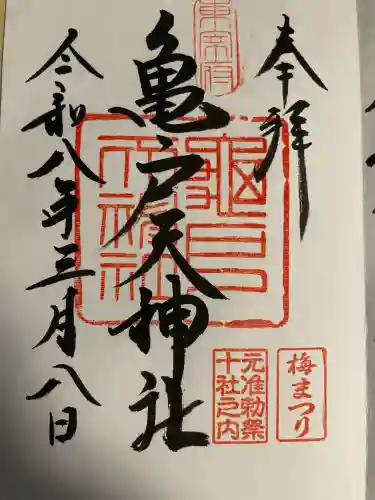 奉拝
東宰府
亀戸天神社
龜戸天神社
令和八年三月八日
梅まつり
元准勅祭
十社之内